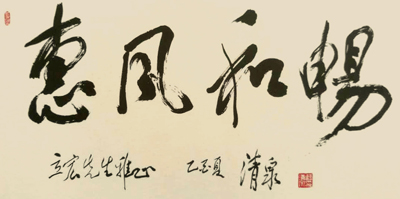 惠风和暢
立宏先生雅正 乙丑夏 清泉